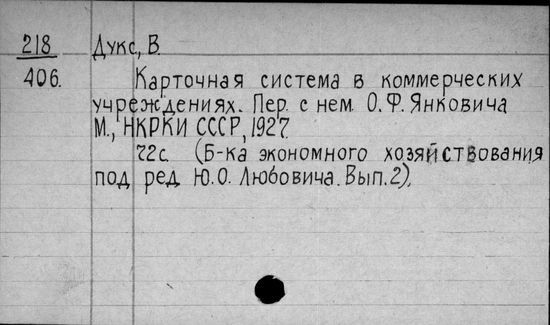 218 Дукс, В.
406. Карточная система в коммерческих
учреждениях. Пер. с нем. О.Ф. Янковича
М., НКРКИ СССР, 1927.
72с. (Б-ка экономного хозяйствования
под ред. Ю.О. Любовича. Вып. 2).